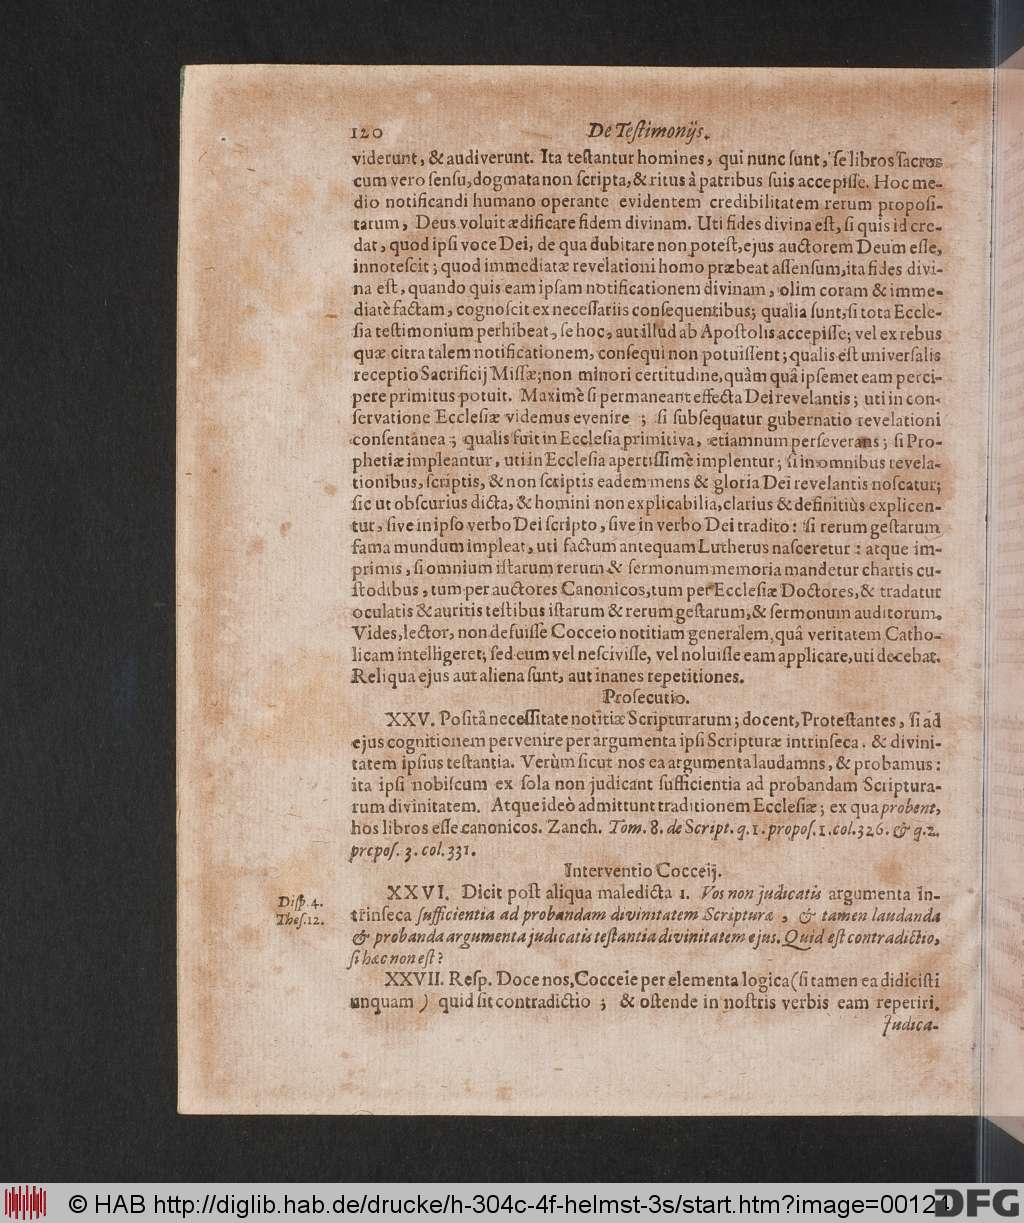 120 De Teſtimonijs.
viderunt, & audiverunt. Ita teſtantur homines, qui nunc ſunt, ſe libros ſacros
cum vero ſenſu, dogmata non ſcripta, & ritus à patribus ſuis accepiſſe. Hoc me-
dio notificandi humano operante evidentem credibilitatem rerum propoſi-
tarum, Deus voluit ædificare fidem divinam. Uti fides divina eſt, ſi quis id cre-
dat, quod ipſi voce Dei, de qua dubitare non poteſt, ejus auctorem Deum eſſe,
innoteſcit; quod immediatæ revelationi homo præbeat aſſenſum, ita fides divi-
na eſt, quando quis eam ipſam notificationem divinam, olim coram & imme-
diatè factam, cognoſcit ex neceſſariis conſequentibus; qualia ſunt, ſi tota Eccle-
ſia teſtimonium perhibeat, ſe hoc, aut illud ab Apoſtolis accepiſſe; vel ex rebus
quæ citra talem notificationem, conſequi non potuiſſent; qualis eſt univerſalis
receptio Sacrificij Miſſæ; non minori certitudine, quàm quâ ipſemet eam perci-
pere primitus potuit. Maximè ſi permaneant effecta Dei revelantis; uti in con-
ſervatione Eccleſiæ videmus evenire; ſi ſubſequatur gubernatio revelationi
conſentanea; qualis fuit in Eccleſia primitiva, etiamnum perſeverans; ſi Pro-
phetiæ impleantur, uti in Eccleſia apertiſſimè implentur; ſi in omnibus revela-
tionibus, ſcriptis, & non ſcriptis eadem mens & gloria Dei revelantis noſcatur;
ſic ut obſcurius dicta, & homini non explicabilia, clarius & definitiùs explicen-
tur, ſive in ipſo verbo Dei ſcripto, ſive in verbo Dei tradito: ſi rerum geſtarum
fama mundum impleat, uti factum antequam Lutherus naſceretur: atque im-
primis, ſi omnium iſtarum rerum & ſermonum memoria mandetur chartis cu-
ſtodibus, tum per auctores Canonicos, tum per Eccleſiæ Doctores, & tradatur
oculatis & auritis teſtibus iſtarum & rerum geſtarum, & ſermonum auditorum.
Vides, lector, non defuiſſe Cocceio notitiam generalem, quâ veritatem Catho-
licam intelligeret; ſed eum vel neſciviſſe, vel noluiſſe eam applicare, uti decebat.
Reliqua ejus aut aliena ſunt, aut inanes repetitiones.
Proſecutio.
XXV. Poſitâ neceſſitate notitiæ Scripturarum; docent, Proteſtantes, ſi ad
ejus cognitionem pervenire per argumenta ipſi Scripturæ intrinſeca. & divini-
tatem ipſius teſtantia. Verùm ſicut nos ea argumenta laudamns, & probamus:
ita ipſi nobiſcum ex ſola non judicant ſufficientia ad probandam Scriptura-
rum divinitatem. Atque ideò admittunt traditionem Eccleſiæ; ex qua probent,
hos libros eſſe canonicos. Zanch. Tom. 8. de Script. q. 1. propoſ. 1. col. 326. & q. 2.
prepoſ. 3. col. 331.
Interventio Cocceij.
XXVI. Dicit poſt aliqua maledicta 1. Vos non judicatis argumenta in-
Diſp. 4.
Theſ. 12.
trinſeca ſufficientia ad probandam divinitatem Scripturæ, & tamen laudanda
& probanda argumenta judicatis teſtantia divinitatem ejus. Quid eſt contradictio,
ſi hæc non eſt?
XXVII. Reſp. Doce nos, Cocceie per elementa logica (ſi tamen ea didiciſti
unquam) quid ſit contradictio; & oſtende in noſtris verbis eam reperiri.
Judica-
© HAB http://diglib.hab.de/drucke/h-304c-4f-helmst-3s/start.htm?image=00124
DFG